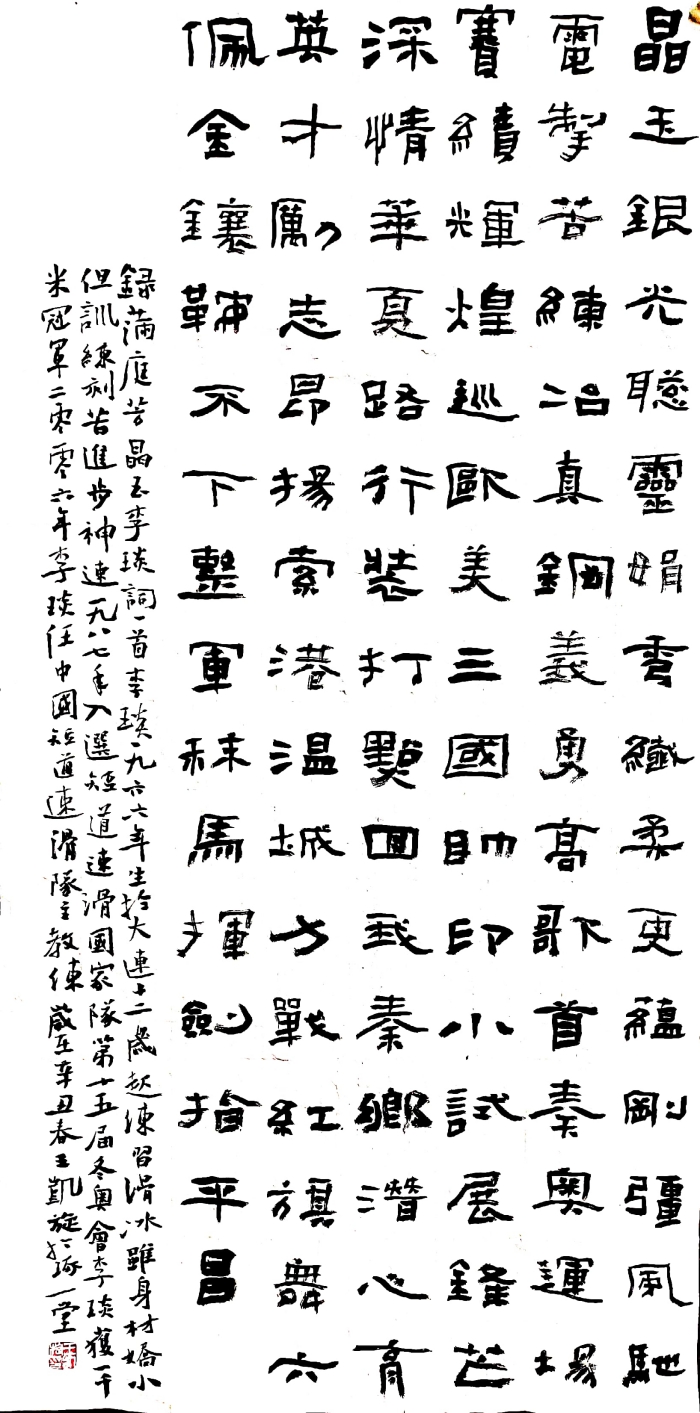 晶玉銀光聰靈娟秀纖柔更蘊剛彊風馳
電掣苦練冶真鋼義勇高歌首奏奧運場
賽續輝煌巡歐美三國帥印小試展鋒芒
深情華夏路行裝打點回我秦鄉潛心育
英才勵志昂揚索港溫城方戰紅旗舞六
佩金鑲鞍不下整軍秣馬揮劍指平昌
錄滿庭芳晶玉李琰詞一首李琰一九六六年生於大連十二歲起練習滑冰雖身材嬌小
但訓練刻苦進步神速一九八七年入選短道速滑國家隊第十五屆冬奧會李琰獲一千
米冠軍二零零六年李琰任中國短道速滑隊主教練歲在辛丑春王凱旋於一堂